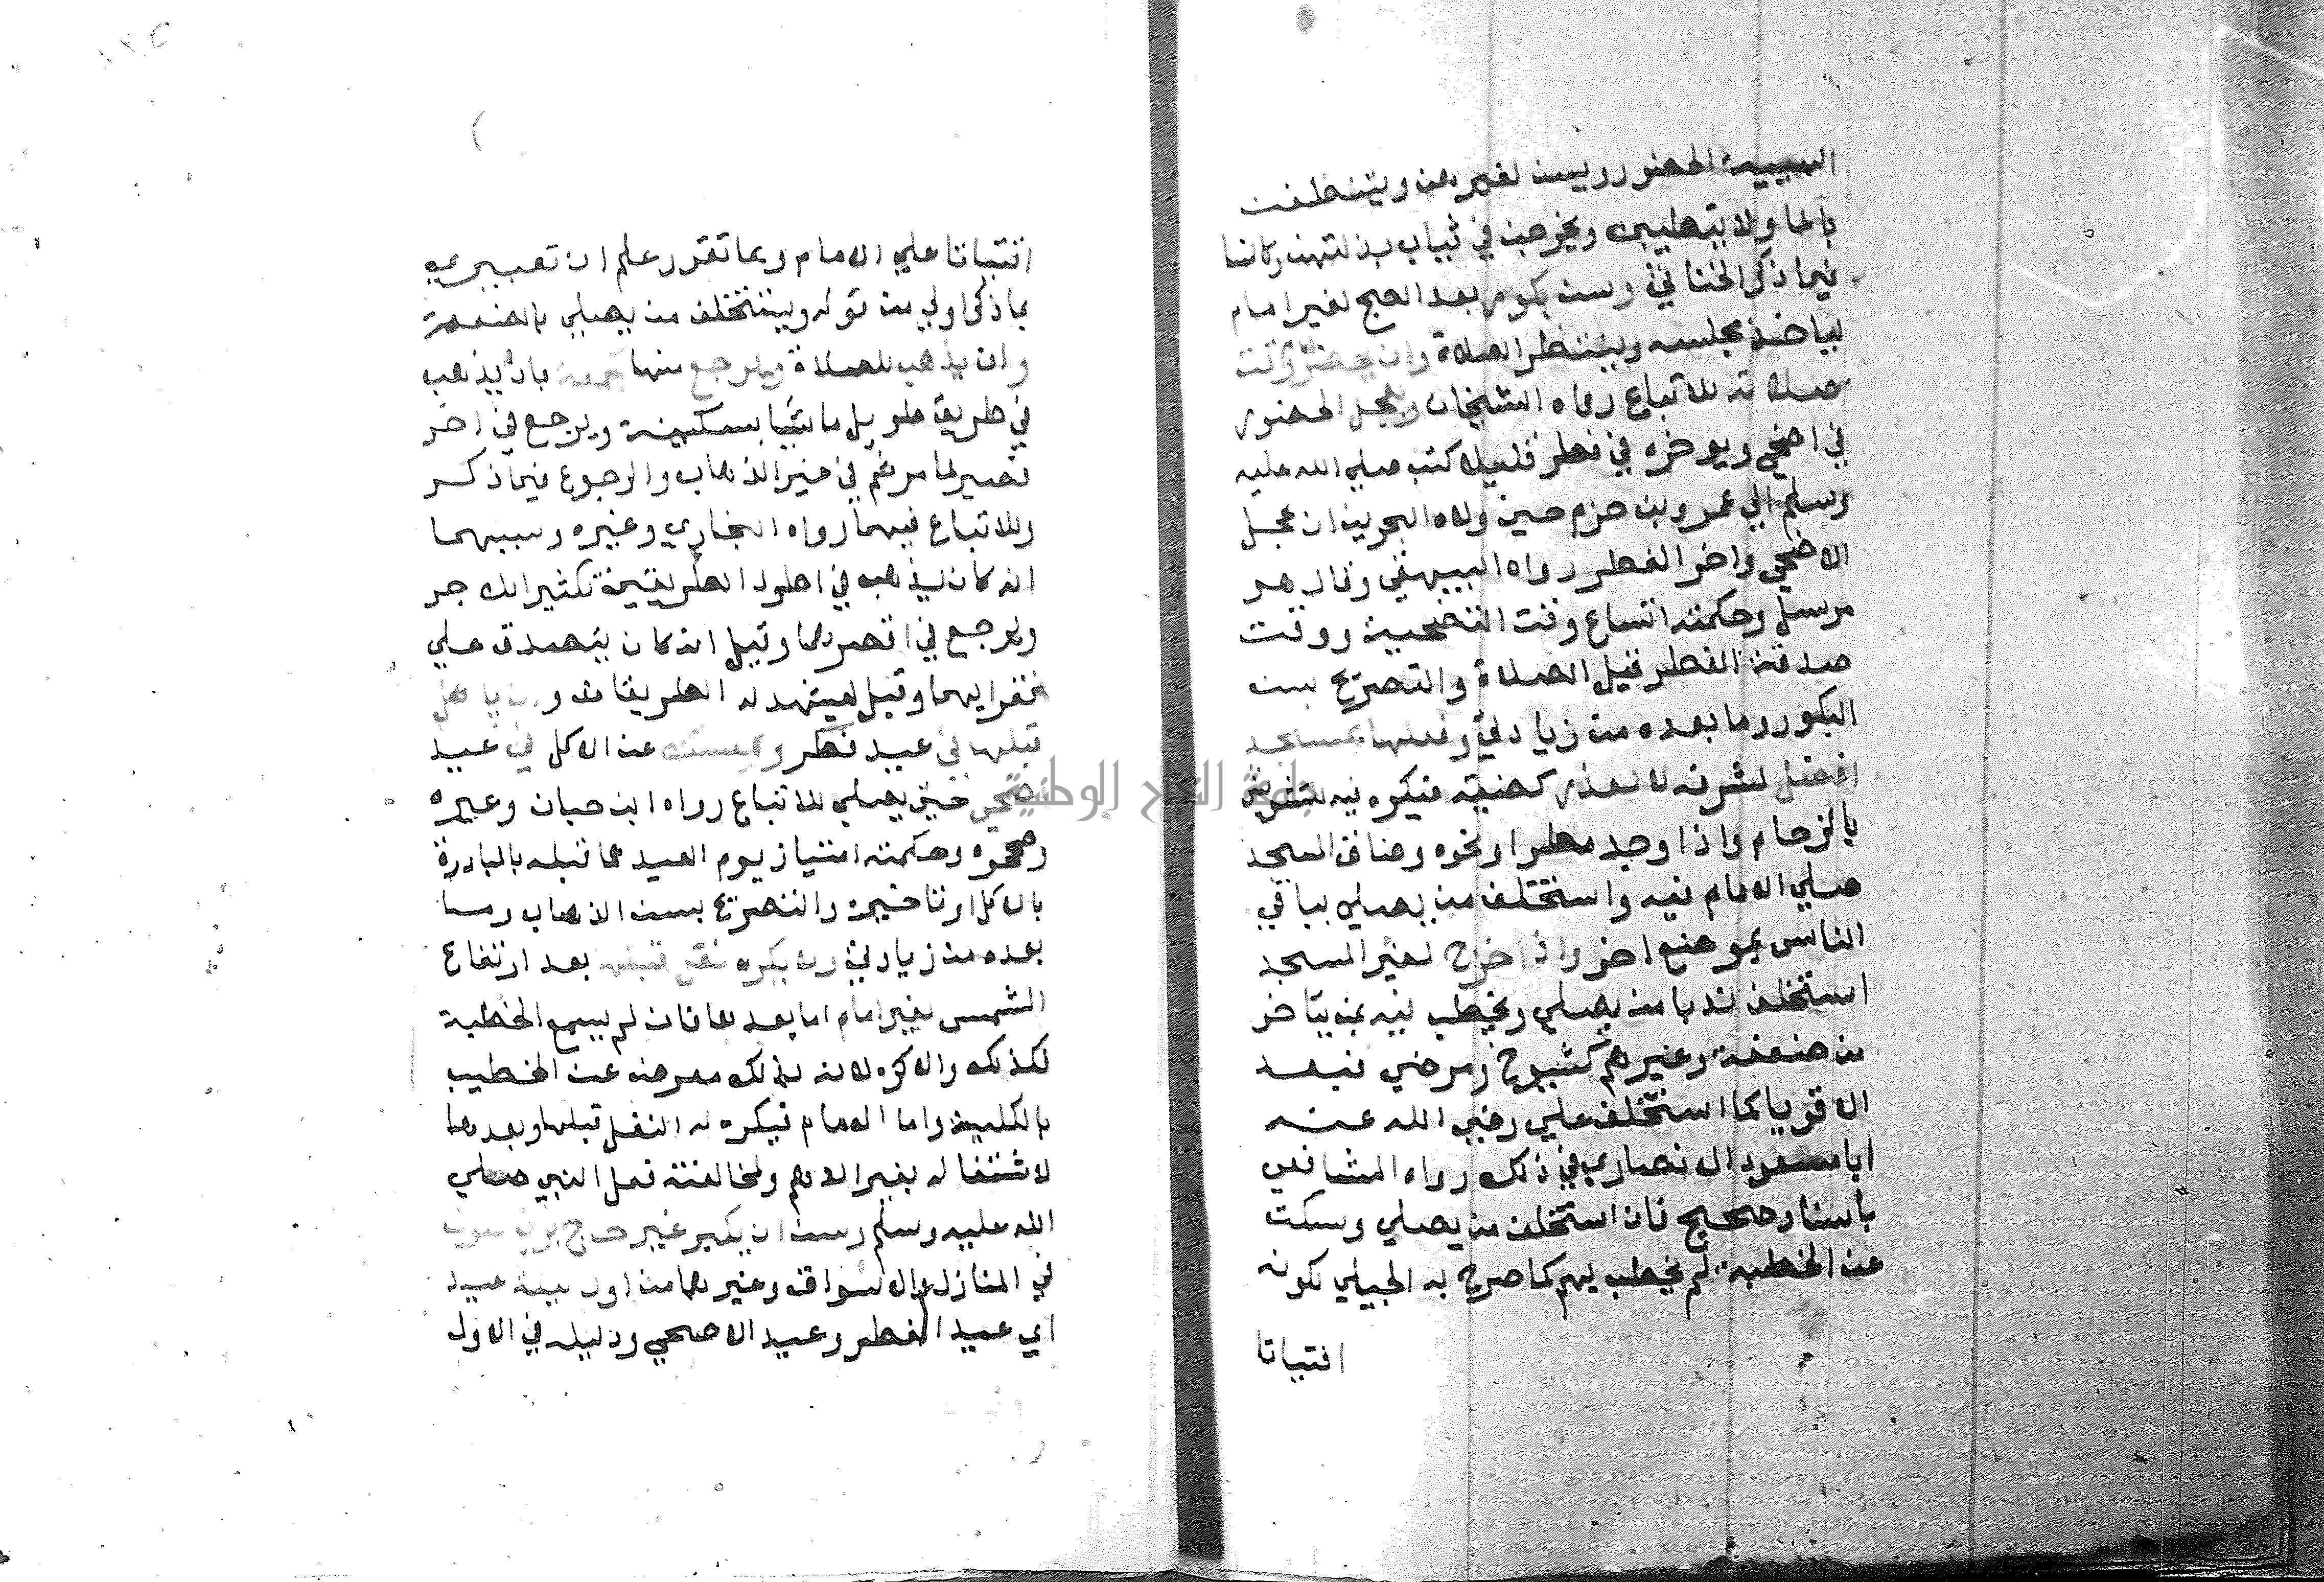 الهيئة الحضور ويسن لغيرهن ويتنظفن
بالما ولا يتطيبن ويخرجن في ثياب بذلتهن وكالنسا
فيما ذكر الخناثي وسن بكور بعد الصبح لغير امام
لياخذ مجلسه وينتظر الصلاة وان يحضر وقت
صلاته للاتباع رواه الشيخان ويعجل الحضور
في اضحي ويوخره في فطر قليلا كتب صلي الله عليه
وسلم الي عمرو بن حزم حين ولاه البحرين ان عجل
الاضحي واخر الفطر رواه البيهقي وقال هو
مرسل وحكمته اتساع وقت التضحية ووقت
صدقة الفطر قبل الصلاة والتصريح بسن
البكور وما بعده من زيادتي وفعلها بمسجد
افضل لشرفه لا لعذر كضيقه فيكره فيه للتشويش
بالزحام واذا وجد مطر او نحوه وضاق المسجد
صلي الامام فيه واستخلف من يصلي بباقي
الناس بموضع اخر واذا خرج لغير المسجد
استخلف ندبا من يصلي ويخطب فيه بمن يتاخر
من ضعفة وغيرهم كشيوخ ومرضي وبعض
الاقويا كما استخلف علي رضي الله عنه
ابا مسعود الانصاري في ذلك رواه الشافعي
باسناد صحيح فان استخلف من يصلي وسكت
عن الخطبة لم يخطب بهم كما صرح به الجيلي لكونه
افتياتا
افتياتا علي الامام وبما تقرر علم ان تعبيري
بما ذكر اولي من قوله ويستخلف من يصلي بالضعفة
وان يذهب للصلاة ويرجع منها كجمعة بان يذهب
في طريق طويل ماشيا بسكينة ويرجع في اخر
قصير لما مر ثم في غير الذهاب والرجوع فيما ذكر
وللاتباع فيهما رواه البخاري وغيره وسببهما
انه كان يذهب في اطول الطريقين تكثيرا للاجر
ويرجع في اقصرهما وقيل انه كان يتصدق علي
فقرايهما وقيل ليشهد له الطريقان وان ياكل
قبلها في عيد فطر ويمسك عن الاكل في عيد
اضحي حتي يصلي للاتباع رواه ابن حبان وغيره
وصححوه وحكمته امتياز يوم العيد عما قبله بالمبادرة
بالاكل او تاخيره والتصريح بسن الذهاب وما
بعده من زيادتي ولا يكره نفل قبلها بعد ارتفاع
الشمس لغير امام اما بعدها فان لم يسمع الخطبة
فكذلك والا كره لانه بذلك معرض عن الخطيب
بالكلية واما الامام فيكره له النفل قبلها وبعدها
لاشتغاله بغير الاهم ولمخالفته فعل النبي صلي
الله عليه وسلم وسن ان يكبر غير حاج برفع صوت
في المنازل والاسواق وغيرهما من اول ليلة عيد
اي عيد الفطر وعيد الاضحي ودليله في الاول
جامعة النجاح الوطنية